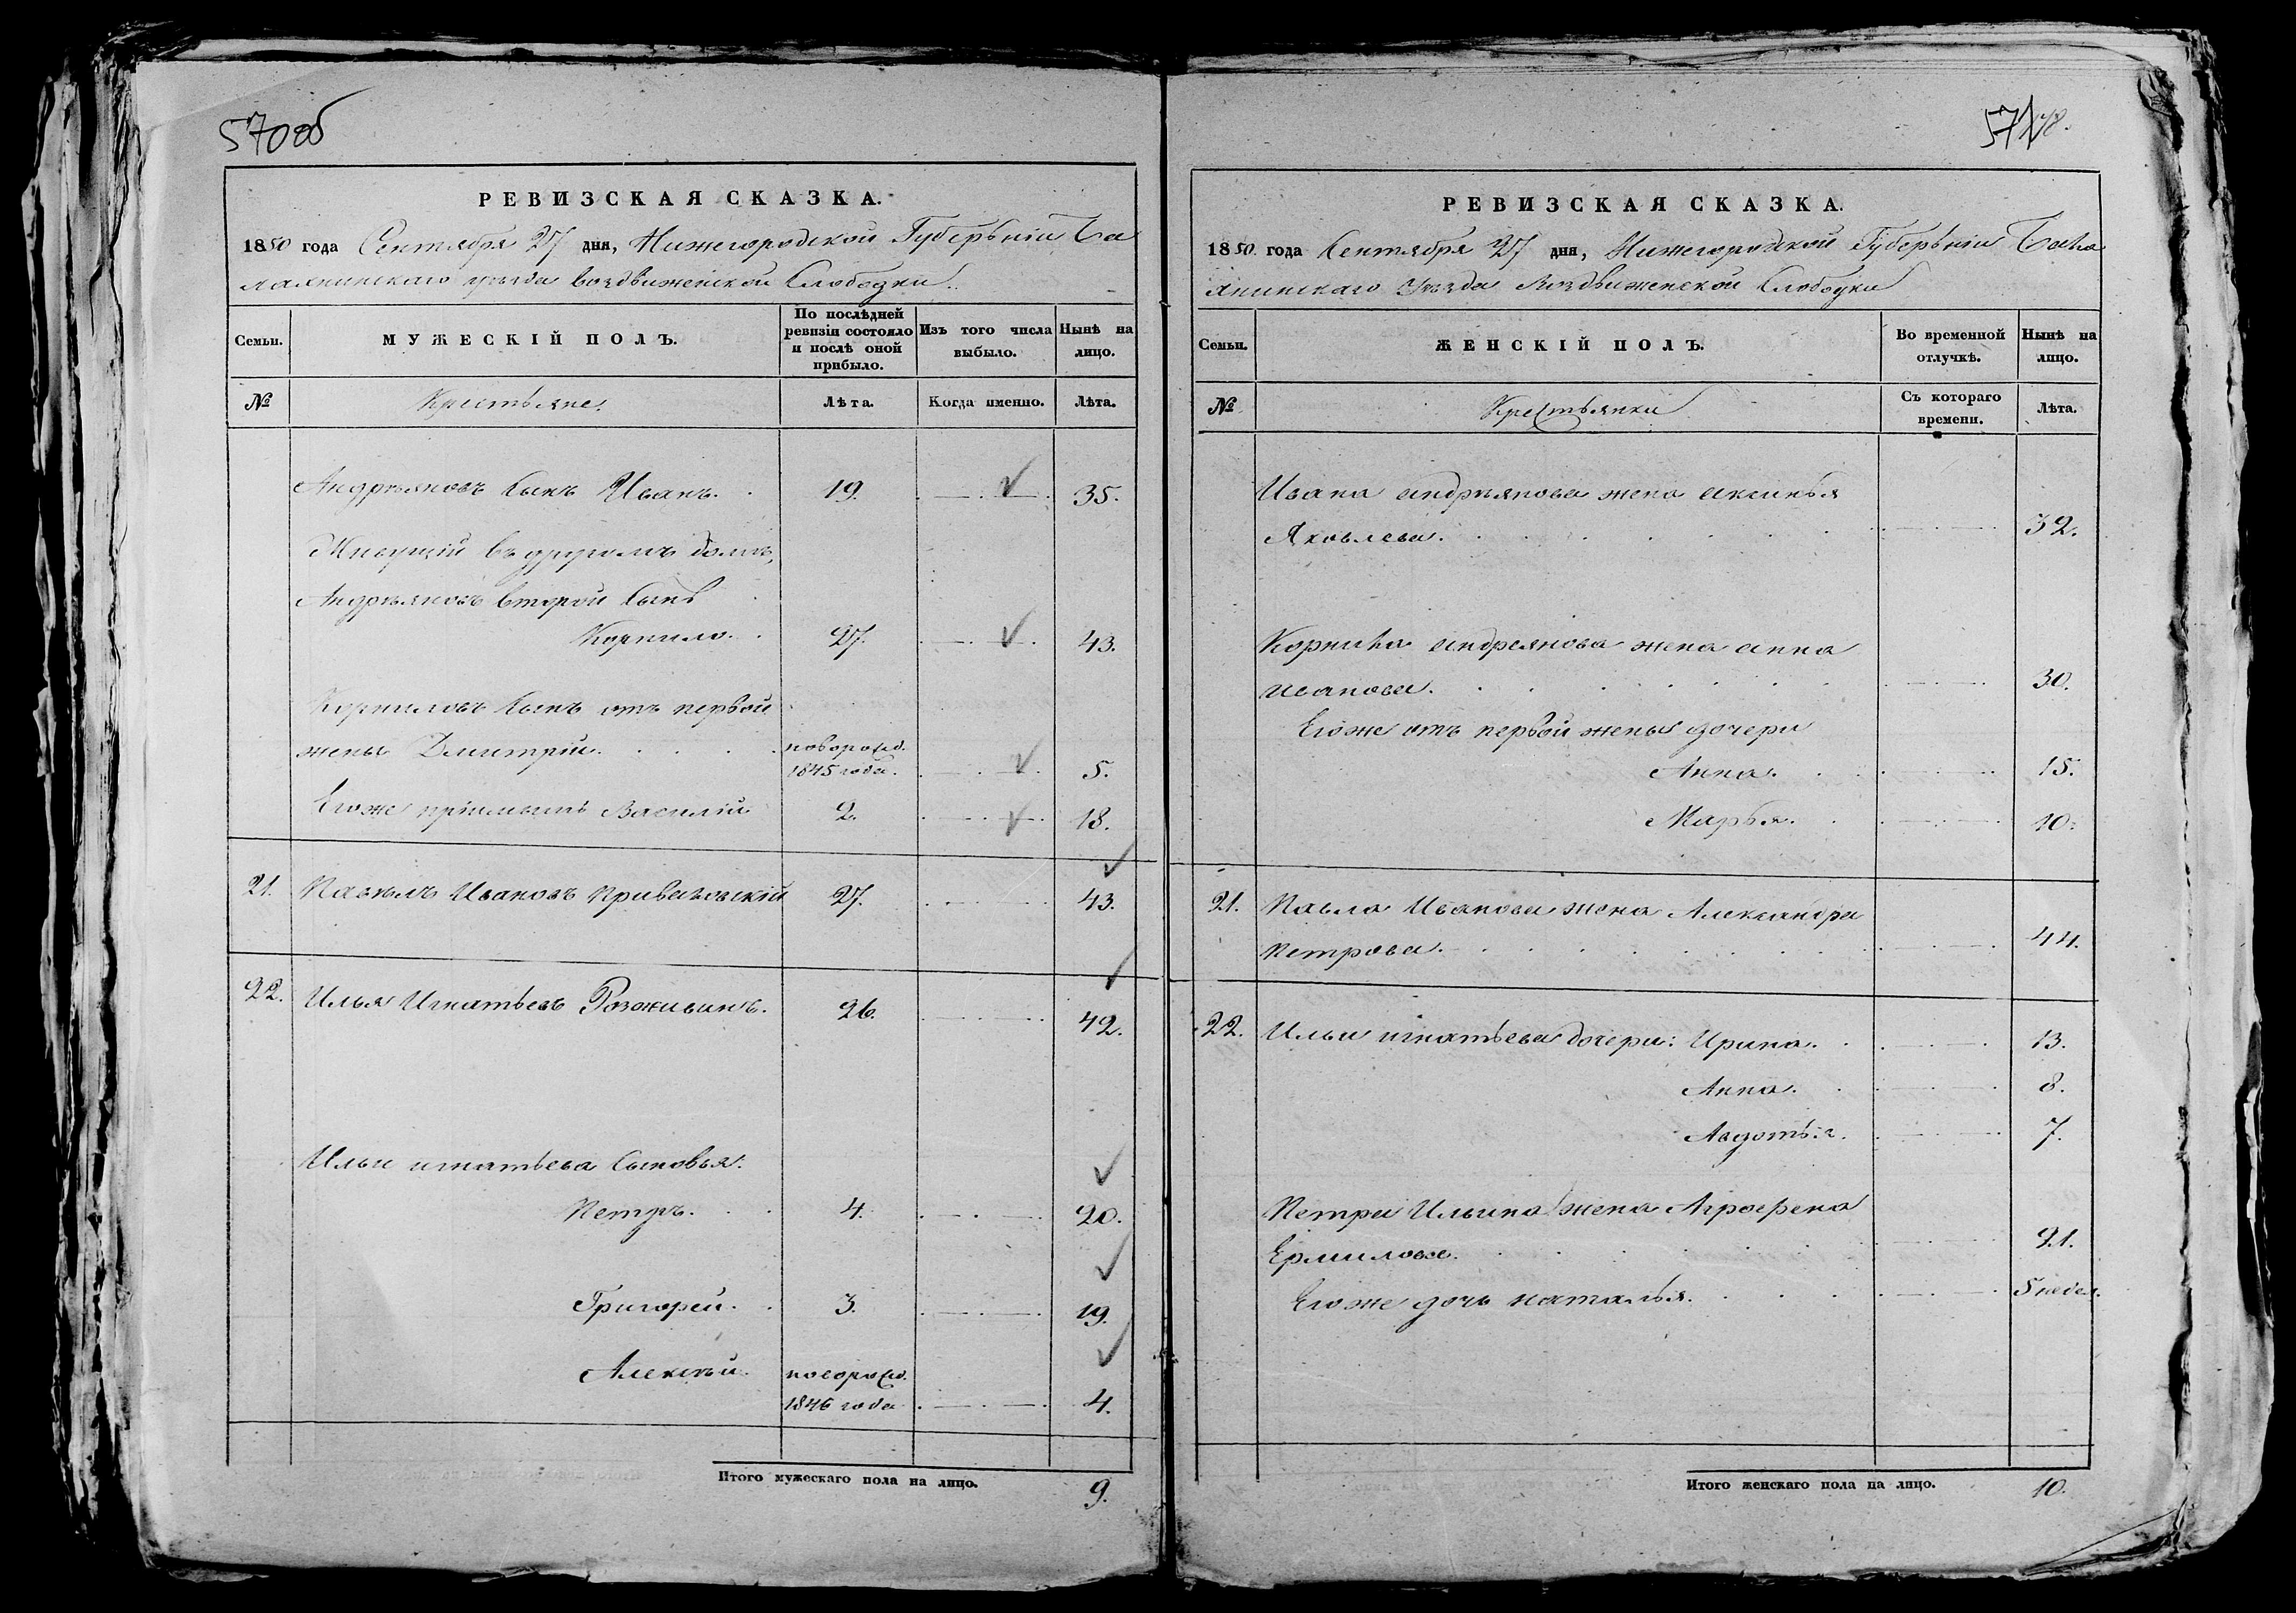 570об
РЕВИЗСКАЯ СКАЗКА.
1850 года Сентября 27 дня, Нижегородской Губерьнии Ба
лахнинскаго уезда воздвиженской Слободки.
Семьи.
МУЖЕСКІЙ ПОЛЪ.
По послѣдней ревизіи состояло и послѣ оной прибыло.
Изъ того числа выбыло.
Нынѣ на лицо.
№
Крестьяне.
Лѣта.
Когда именно.
Лѣта.
Андреяновъ сынъ Иванъ. 19. 35.
Живущій въ другомъ домѣ,
Андреяновъ второй сынъ
Корнило. 27. 43.
Корниловъ сынъ отъ первой
жены Дмитрій. новорожд. 1845 года. 5.
Егоже пріимышъ Василій 2. 18.
21. Павелъ Ивановъ 27. 43.
22. Илья Игнатьевъ Розживинъ. 26. 42.
Ильи игнатьева сыновья:
Петръ. 4. 20.
Григорей. 3. 19.
Алексѣй. новорожд. 1846 года 4.
Итого мужескаго пола на лицо. 9.
571
РЕВИЗСКАЯ СКАЗКА.
1850 года Сентября 27 дня, Нижегородской Губерьнии Бала
хнинскаго Уезда Воздвиженской Слободки
Семьи.
ЖЕНСКІЙ ПОЛЪ.
Во временной отлучкѣ.
Нынѣ на лицо.
№
Крестьянки
Съ котораго времени.
Лѣта.
Ивана андреянова жена аксинья
Яковлева. 32.
Корнила андреянова жена анна
иванова. 30.
Егоже отъ первой жены дочери
Анна. 15.
Марья. 10.
21. Павла Иванова жена Александра
Петрова. 44.
22. Ильи игнатьева дочери: Ирина. 13.
Анна. 8.
Авдотья. 7.
Петра Ильина жена Аграфена
Ермилова. 21.
Егоже дочь наталья. 5 недел.
Итого женскаго пола на лицо. 10.